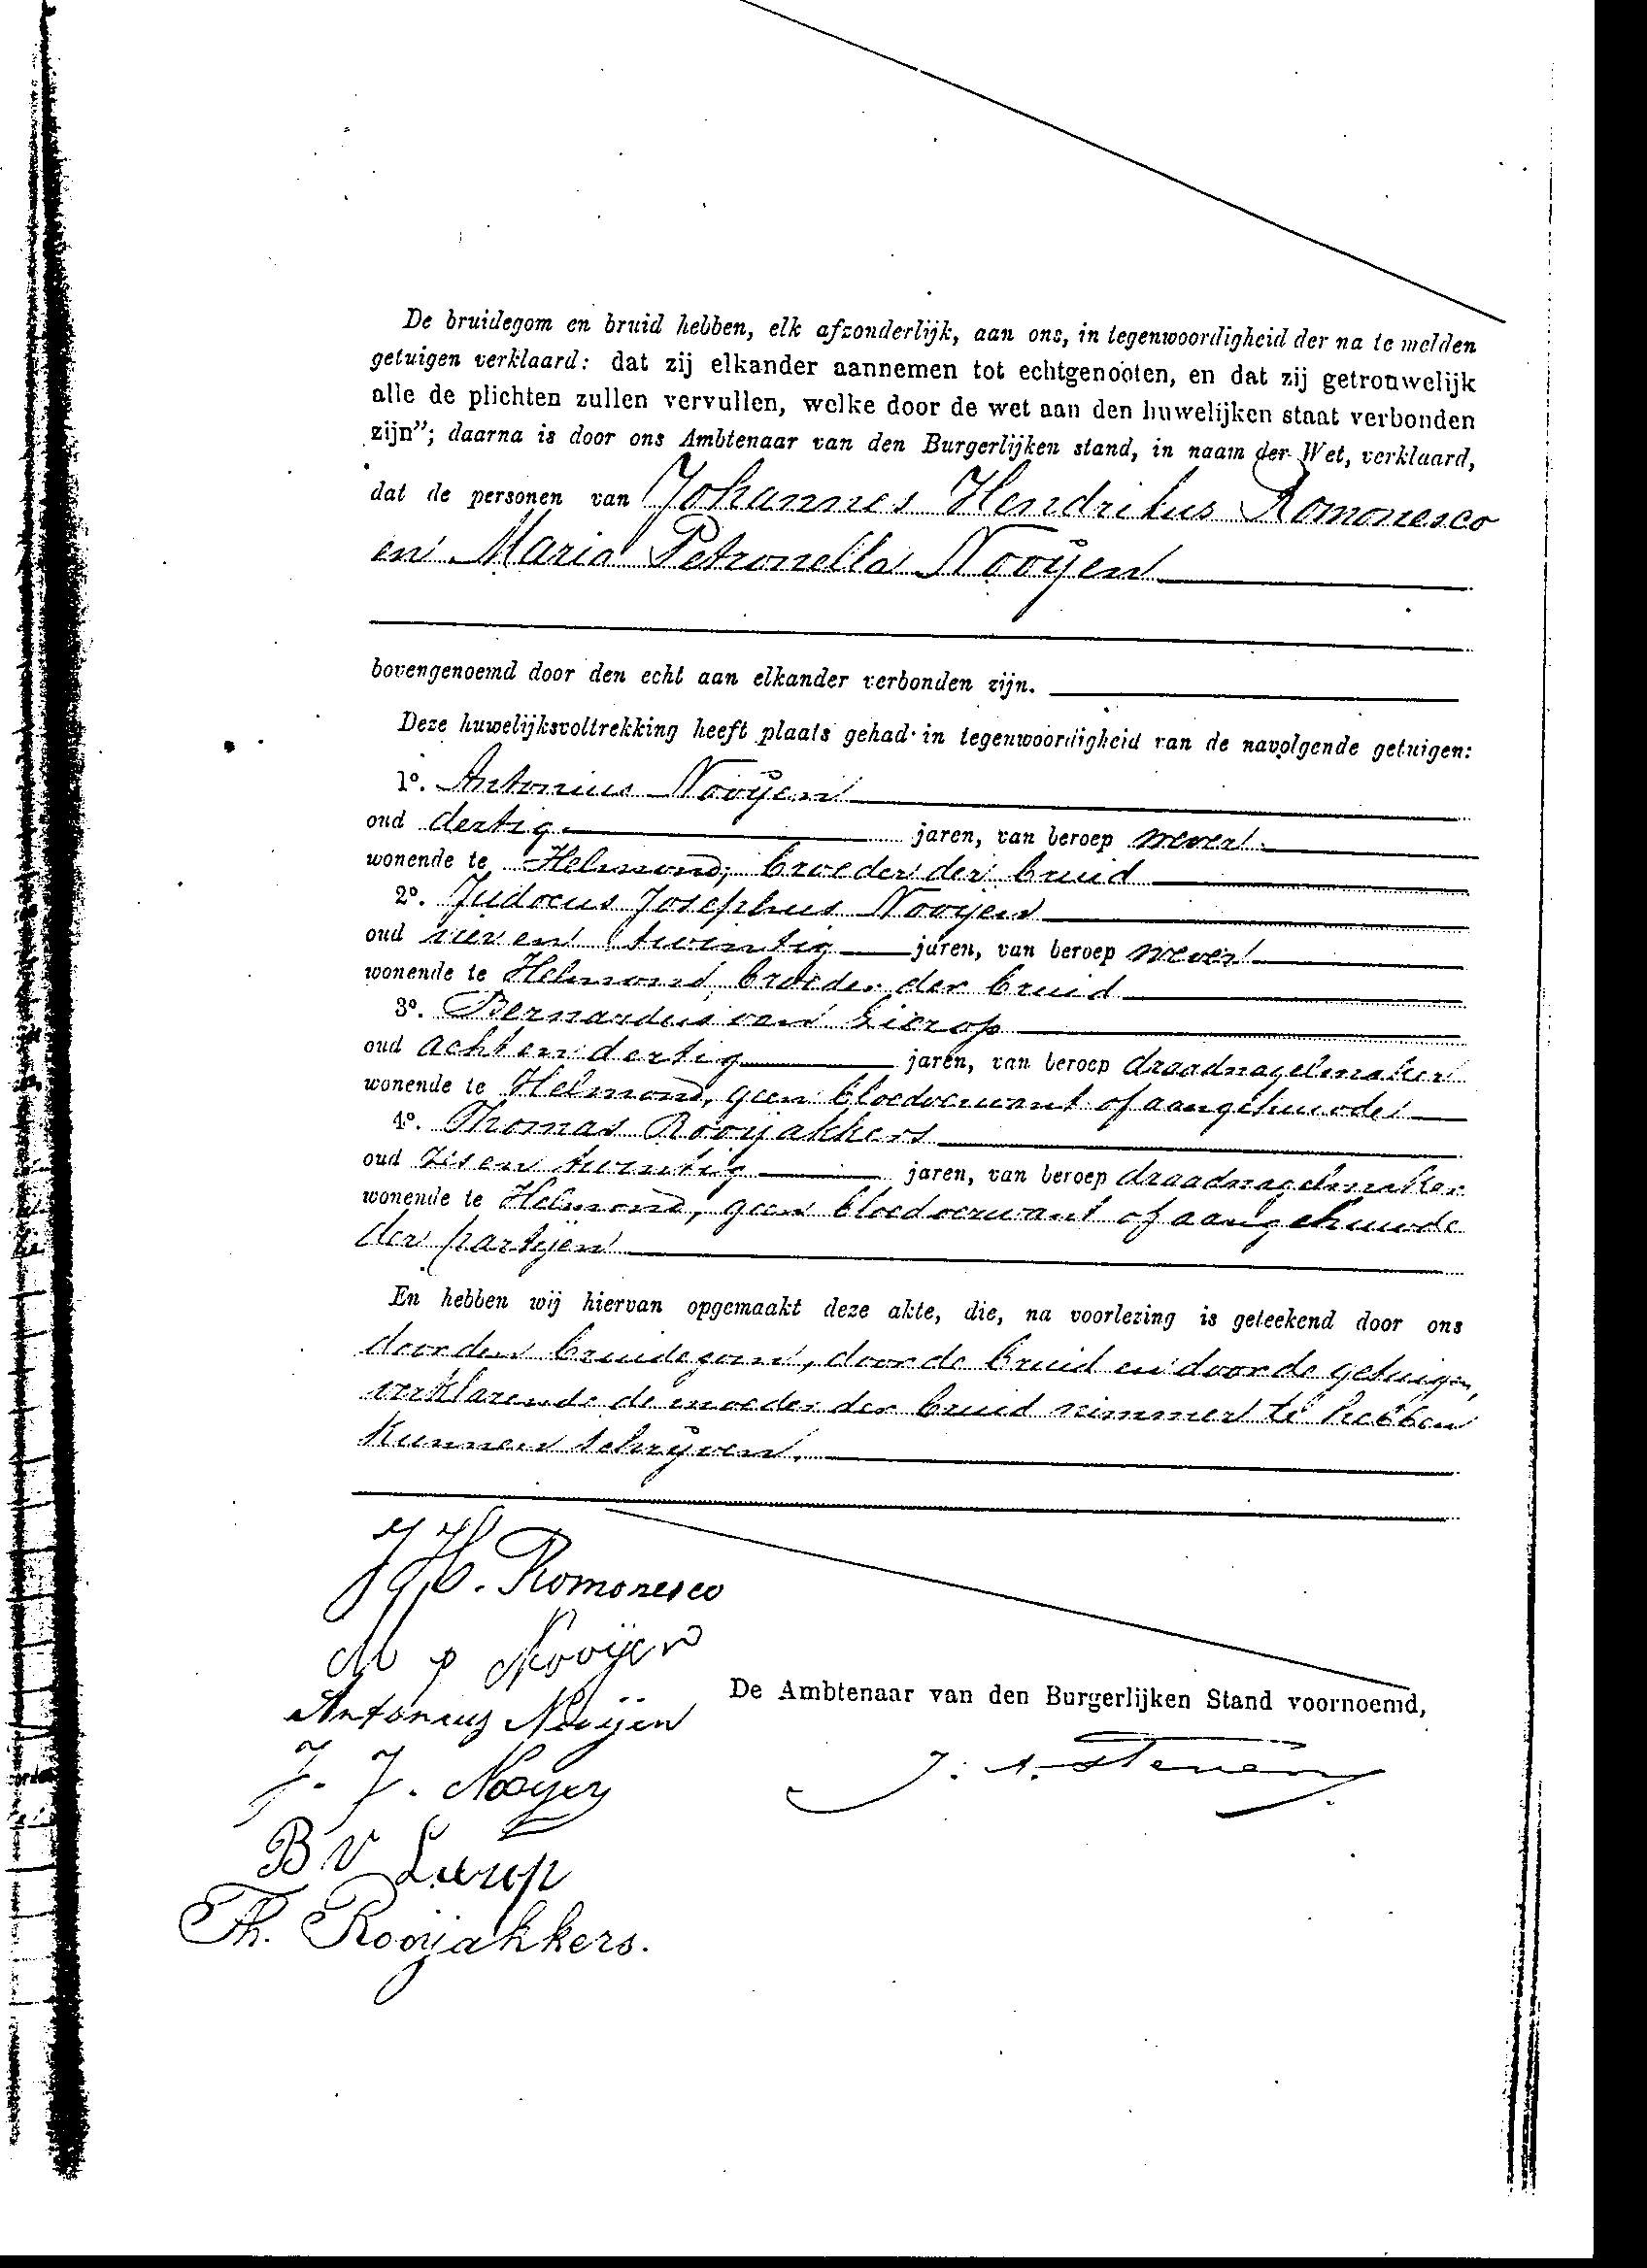 De bruidegom en bruid hebben, elk afzonderlijk, aan ons, in tegenwoordigheid der na te melden
getuigen verklaard: dat zij elkander aannemen tot echtgenooten, en dat zij getrouwelijk
alle de plichten zullen vervullen, welke door de wet aan den huwelijken staat verbonden
zijn”; daarna is door ons Ambtenaar van den Burgerlijken stand, in naam der Wet, verklaard,
dat de personen van Johannes Hendrikus Romonesco
en Maria Petronella Nooijen
bovengenoemd door den echt aan elkander verbonden zijn.
Deze huwelijksvoltrekking heeft plaats gehad in tegenwoordigheid van de navolgende getuigen:
1º. Antonius Nooijen
oud dertig jaren, van beroep wever
wonende te Helmond, broeder der bruid
2º. Judocus Josephus Nooijen
oud vier en twintig jaren, van beroep wever
wonende te Helmond, broeder der bruid
3º. Bernardus van Lierop
oud acht en dertig jaren, van beroep draadnagelmaker
wonende te Helmond, geen bloedverwant of aangehuwde
4º. Thomas Rooijakkers
oud zes en twintig jaren, van beroep draadnagelmaker
wonende te Helmond, geen bloedverwant of aangehuwde
der partijen
En hebben wij hiervan opgemaakt deze akte, die, na voorlezing is geteekend door ons
door den bruidegom, door de bruid en door de getuigen,
verklarende de moeder der bruid nimmer te hebben
kunnen schrijven.
J.H. Romonesco
M P Nooijen
Antonius Nooijen
De Ambtenaar van den Burgerlijken Stand voornoemd,
J. J. Nooijen
J. A. Stevens
B V Lierop
Th. Rooijakkers.